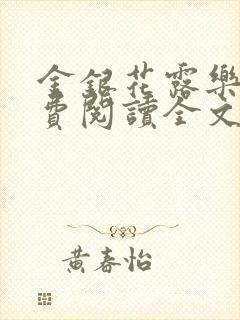 金銀花露樂
費閱讀全文
黃春怡